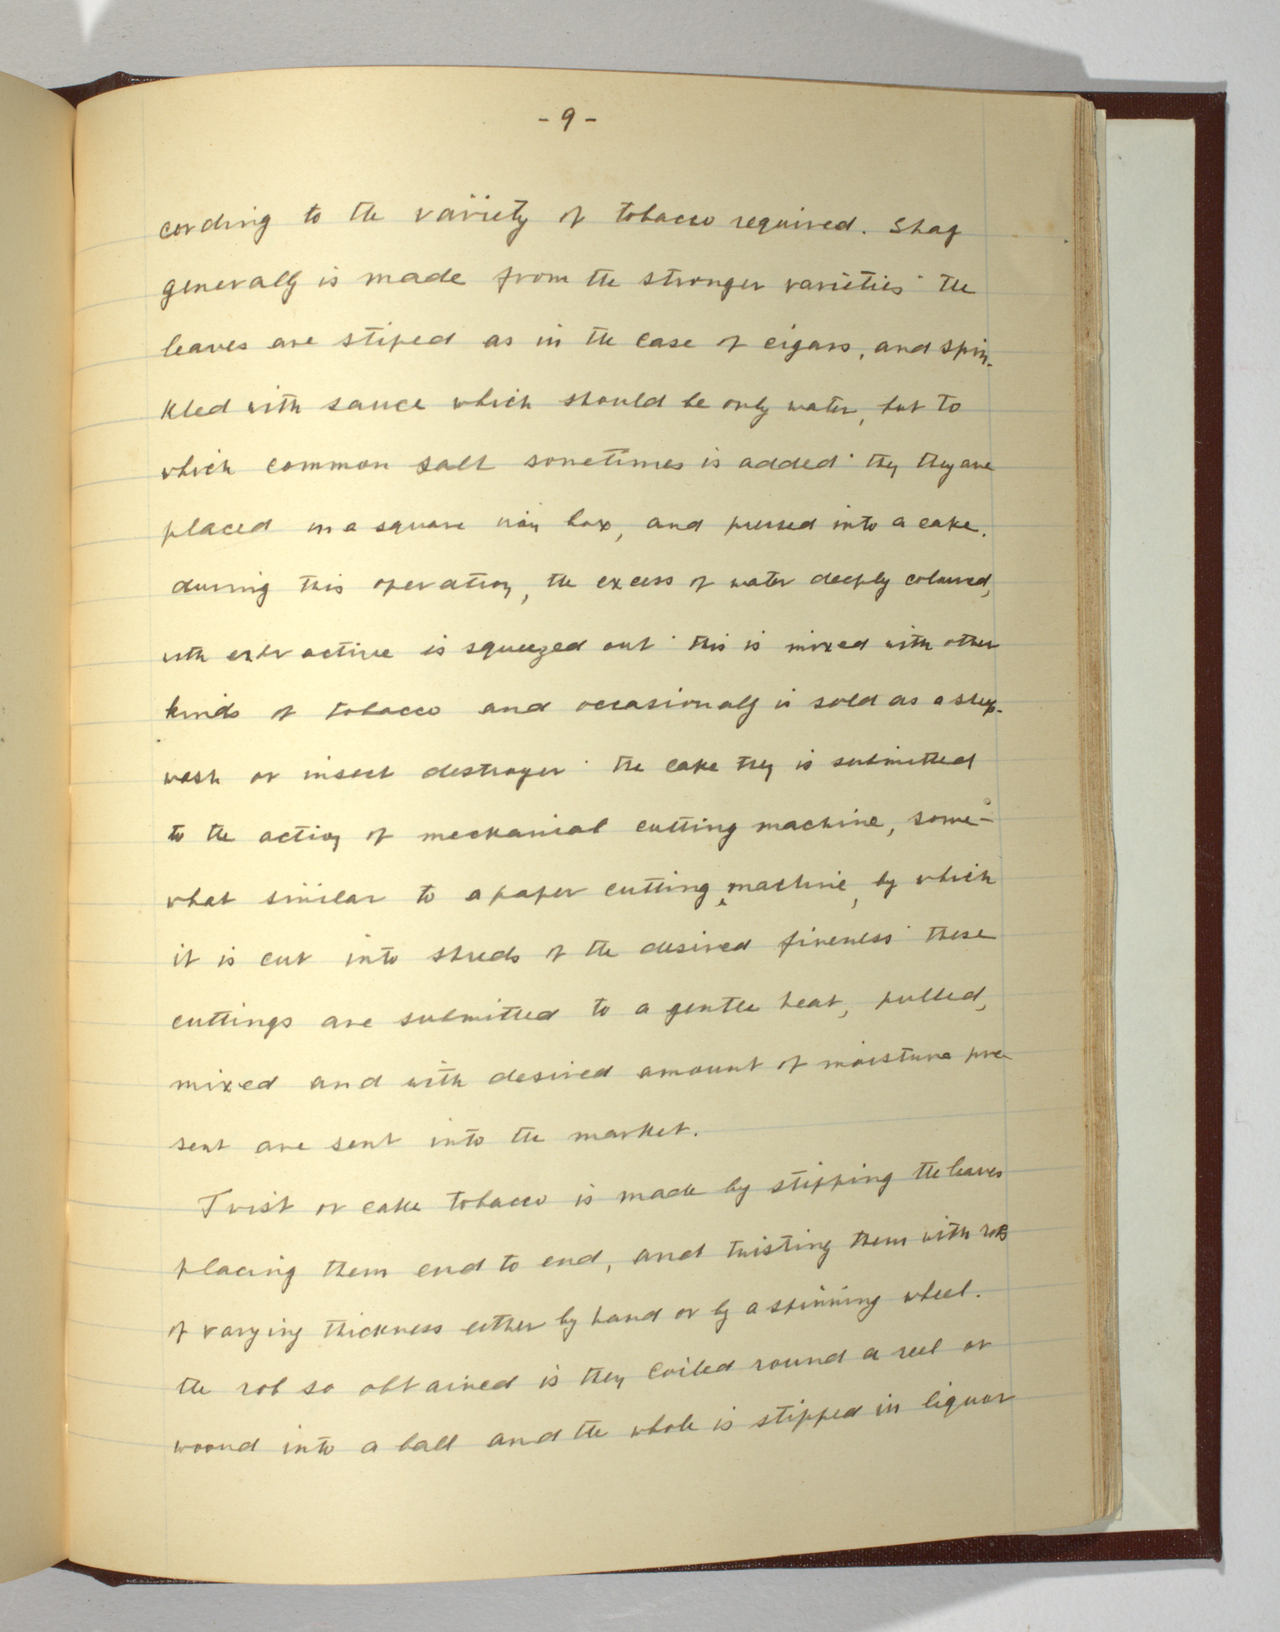 - 9 -
cording to the variety of tobacco required. Shag
generally is made from the stronger varieties the
leaves are stiped as in the case of cigars, and sprin-
kled with sauce which should be only water, but to
which common salt sometimes is added they they are
placed in a square iron box, and pressed into a cake.
during this operation, the excess of water deeply coloured,
with extractive is squeezed out this is mixed with other
kinds of tobacco and occasionally is sold as a sheep-
wash or insect destroyer the cake then is submitted
to the action of mechanical cutting machine, some-
what similar to a paper cutting machine, by which
it is cut into shreds of the desired fineness these
cuttings are submitted to a gentle heat, pulled,
mixed and with desired amount of moisture pre
sent are sent into the market.
Twist or cake tobacco is made by stipping the leaves
placing them end to end, and twisting them with
of varying thickness either by hand or by a spinning wheel.
the rob so obtained is then coiled round a reel or
woond into a ball and the whole is stipped in liquor